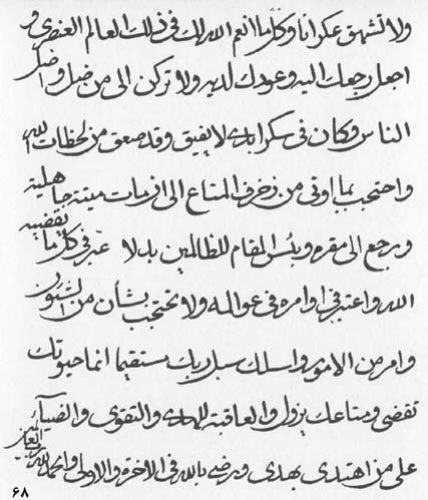 ولا تشهق عكرانا وكلما انعم الله لك فى ذلك العالم العنصرى و
اجعل رجعك اليه وعودك لديه ولا تركن الى من ضل و اضل
الناس وكان فى سكر ابدى لا يفيق وقد صعق من لحظات الله
واحتجب بما اوتى من زخرف المتاع الى ان مات ميتة جاهلية
ورجع الى مقره وبئس المقام للظالمين بدلا فى كل ما يقضيه
الله واعتبر فى اوامره فى عوالمه ولا تحتجب بشأن من الشئون
وامر من الامور واسلك سبل ربك مستقيما انما حيوتك
تفنى ومتاعك يزول والعاقبة للهدى والتقوى والضياء
على من اهتدى بهدى ويرضى بالله فى الاخرة والاولى والحمد لله رب العالمين
۶۸